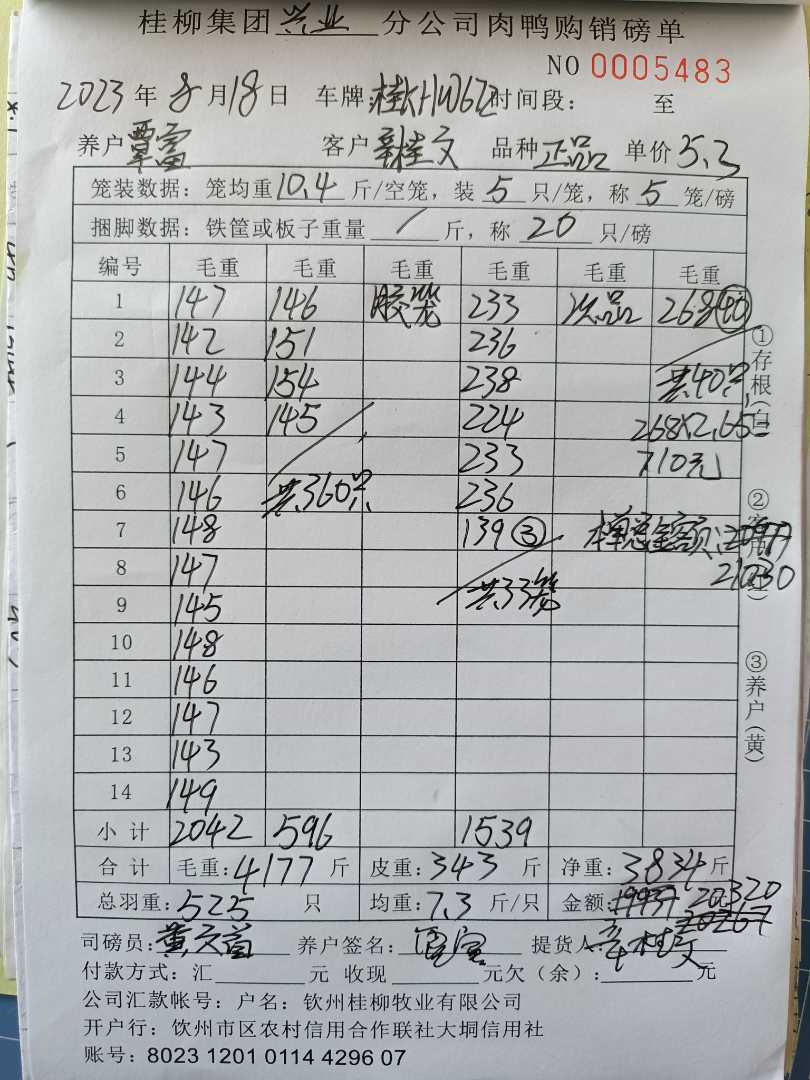 桂柳集团兴业分公司肉鸭购销磅单
NO 0005483
2023年8月18日 车牌:桂KHW672 时间段: 至
养户覃富 客户辛桂文 品种正品 单价5.3
笼装数据: 笼均重10.4斤/空笼, 装5只/笼, 称5笼/磅
捆脚数据: 铁筐或板子重量/斤, 称20只/磅
编号 毛重 毛重 毛重 毛重 毛重 毛重
1 147 146 胶笼 233 次品 268(40)
2 142 151 236
3 144 154 238 共40只
4 143 145 224 268×2.65=
5 147 233 710元
6 146 共360只 236
7 148 139③ 总金额:
8 147 21030
9 145 共33笼
10 148
11 146
12 147
13 143
14 149
小计 2042 596 1539
合计 毛重:4177斤 皮重:343斤 净重:3834斤
总羽重:525只 均重:7.3斤/只 金额:19937 20320
20267
司磅员: 养户签名: 提货人:辛桂文
付款方式: 汇 元 收现 元欠(余): 元
公司汇款帐号: 户名: 钦州桂柳牧业有限公司
开户行: 钦州市区农村信用合作联社大垌信用社
账号: 8023 1201 0114 4296 07
①存根(白)
②
③养户(黄)